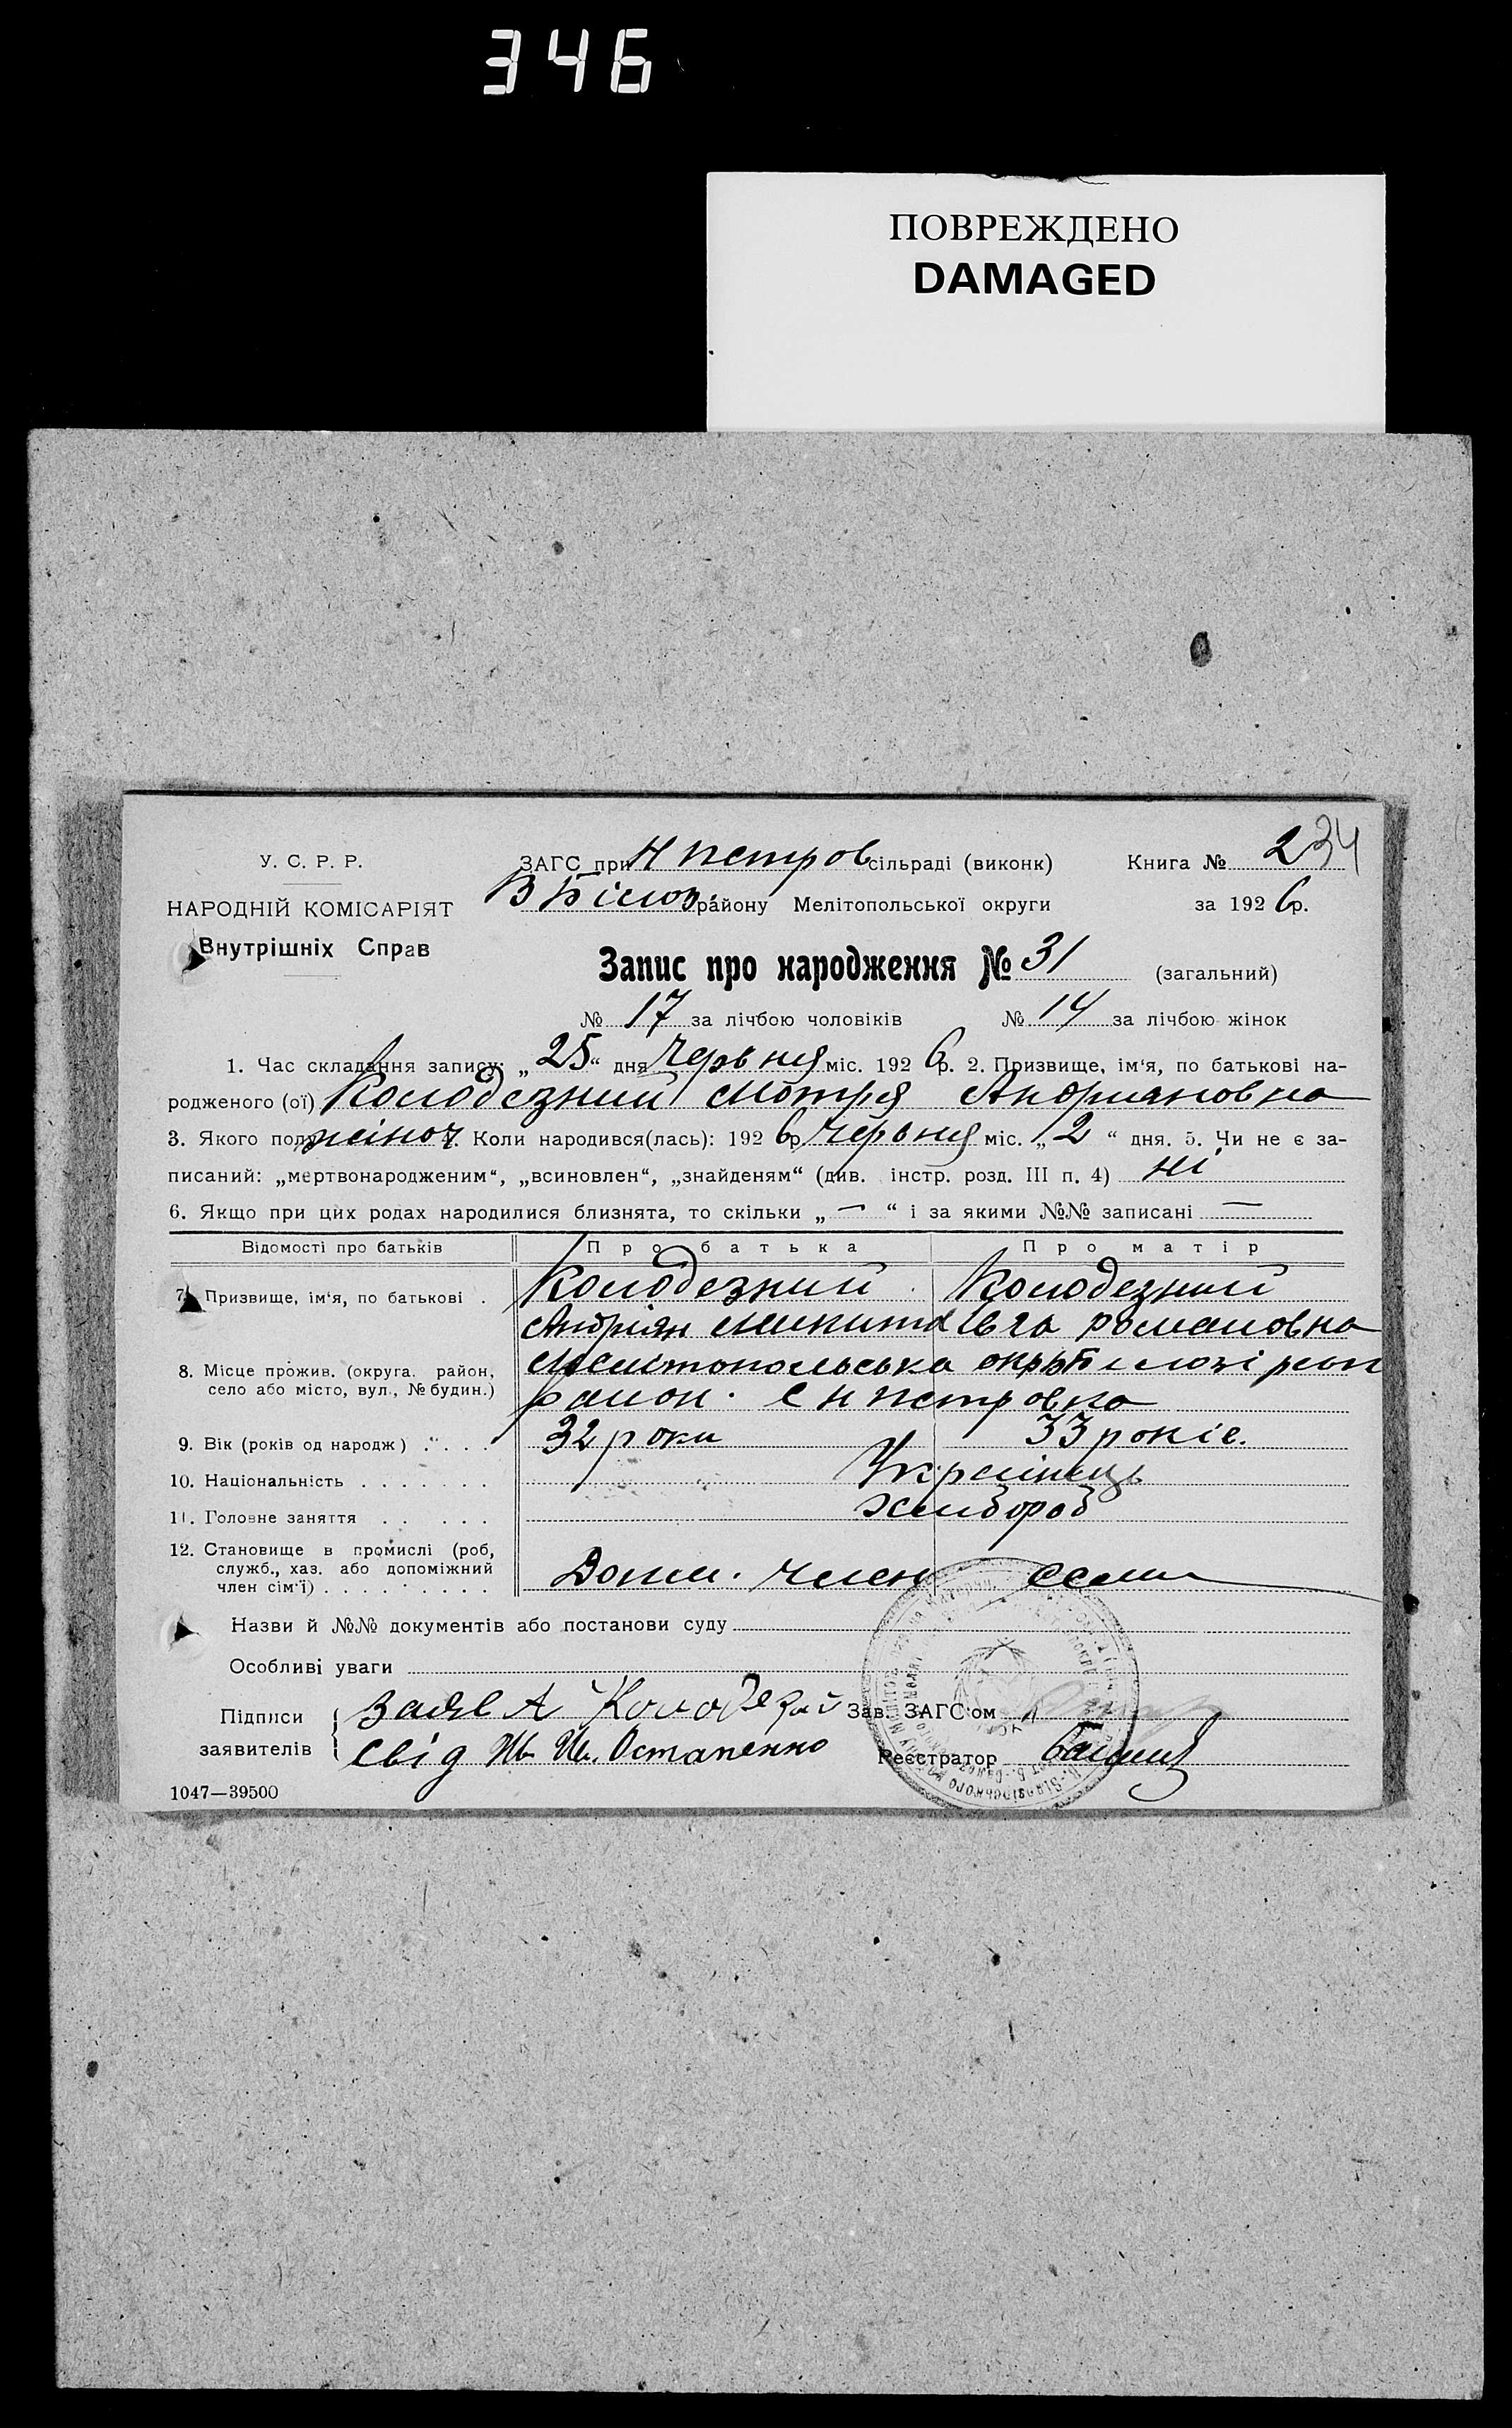 346
ПОВРЕЖДЕНО
DAMAGED
У. С. Р. Р.
НАРОДНІЙ КОМІСАРІЯТ
Внутрішніх Справ
ЗАГС при Н петров сільраді (виконк)
В Білоз. району Мелітопольської округи
Книга № 2
34
за 1926р.
Запис про народження № 31 (загальний)
№ 17 за лічбою чоловіків № 14 за лічбою жінок
1. Час складання запису: „25“ дня Червня міс. 1926р. 2. Призвище, ім‘я, по батькові на-
родженого (ої) Колодезний Мотря Андрияновна
3. Якого полу жіноч 4. Коли народився(лась): 1926р. Червня міс. „12“ дня. 5. Чи не є за-
писаний: „мертвонародженим“, „всиновлен“, „знайденям“ (див. інстр. розд. III п. 4) ні
6. Якщо при цих родах народилися близнята, то скільки „—“ і за якими №№ записані —
Відомості про батьків Про батька Про матір
7. Призвище, ім‘я, по батькові . Колодезний Колодезний
Андріян Микита Івга Романовна
8. Місце прожив. (округа, район, Мелітопольська окр
село або місто, вул., № будин.) район. С Н петровка
9. Вік (років од народж) . . . . 32 роки 33 років.
10. Національність . . . . . . . Українець
11. Головне заняття . . . . . Хлибороб
12. Становище в промислі (роб,
служб., хаз. або допоміжний
член сім‘ї) . . . . . . . . . Допом. член семи
Назви й №№ документів або постанови суду
Особливі уваги
Підписи заявителів
Заяв А Колодезний Зав. ЗАГС‘ом
Свід Ив. Ив. Остапенко Реєстратор
1047—39500